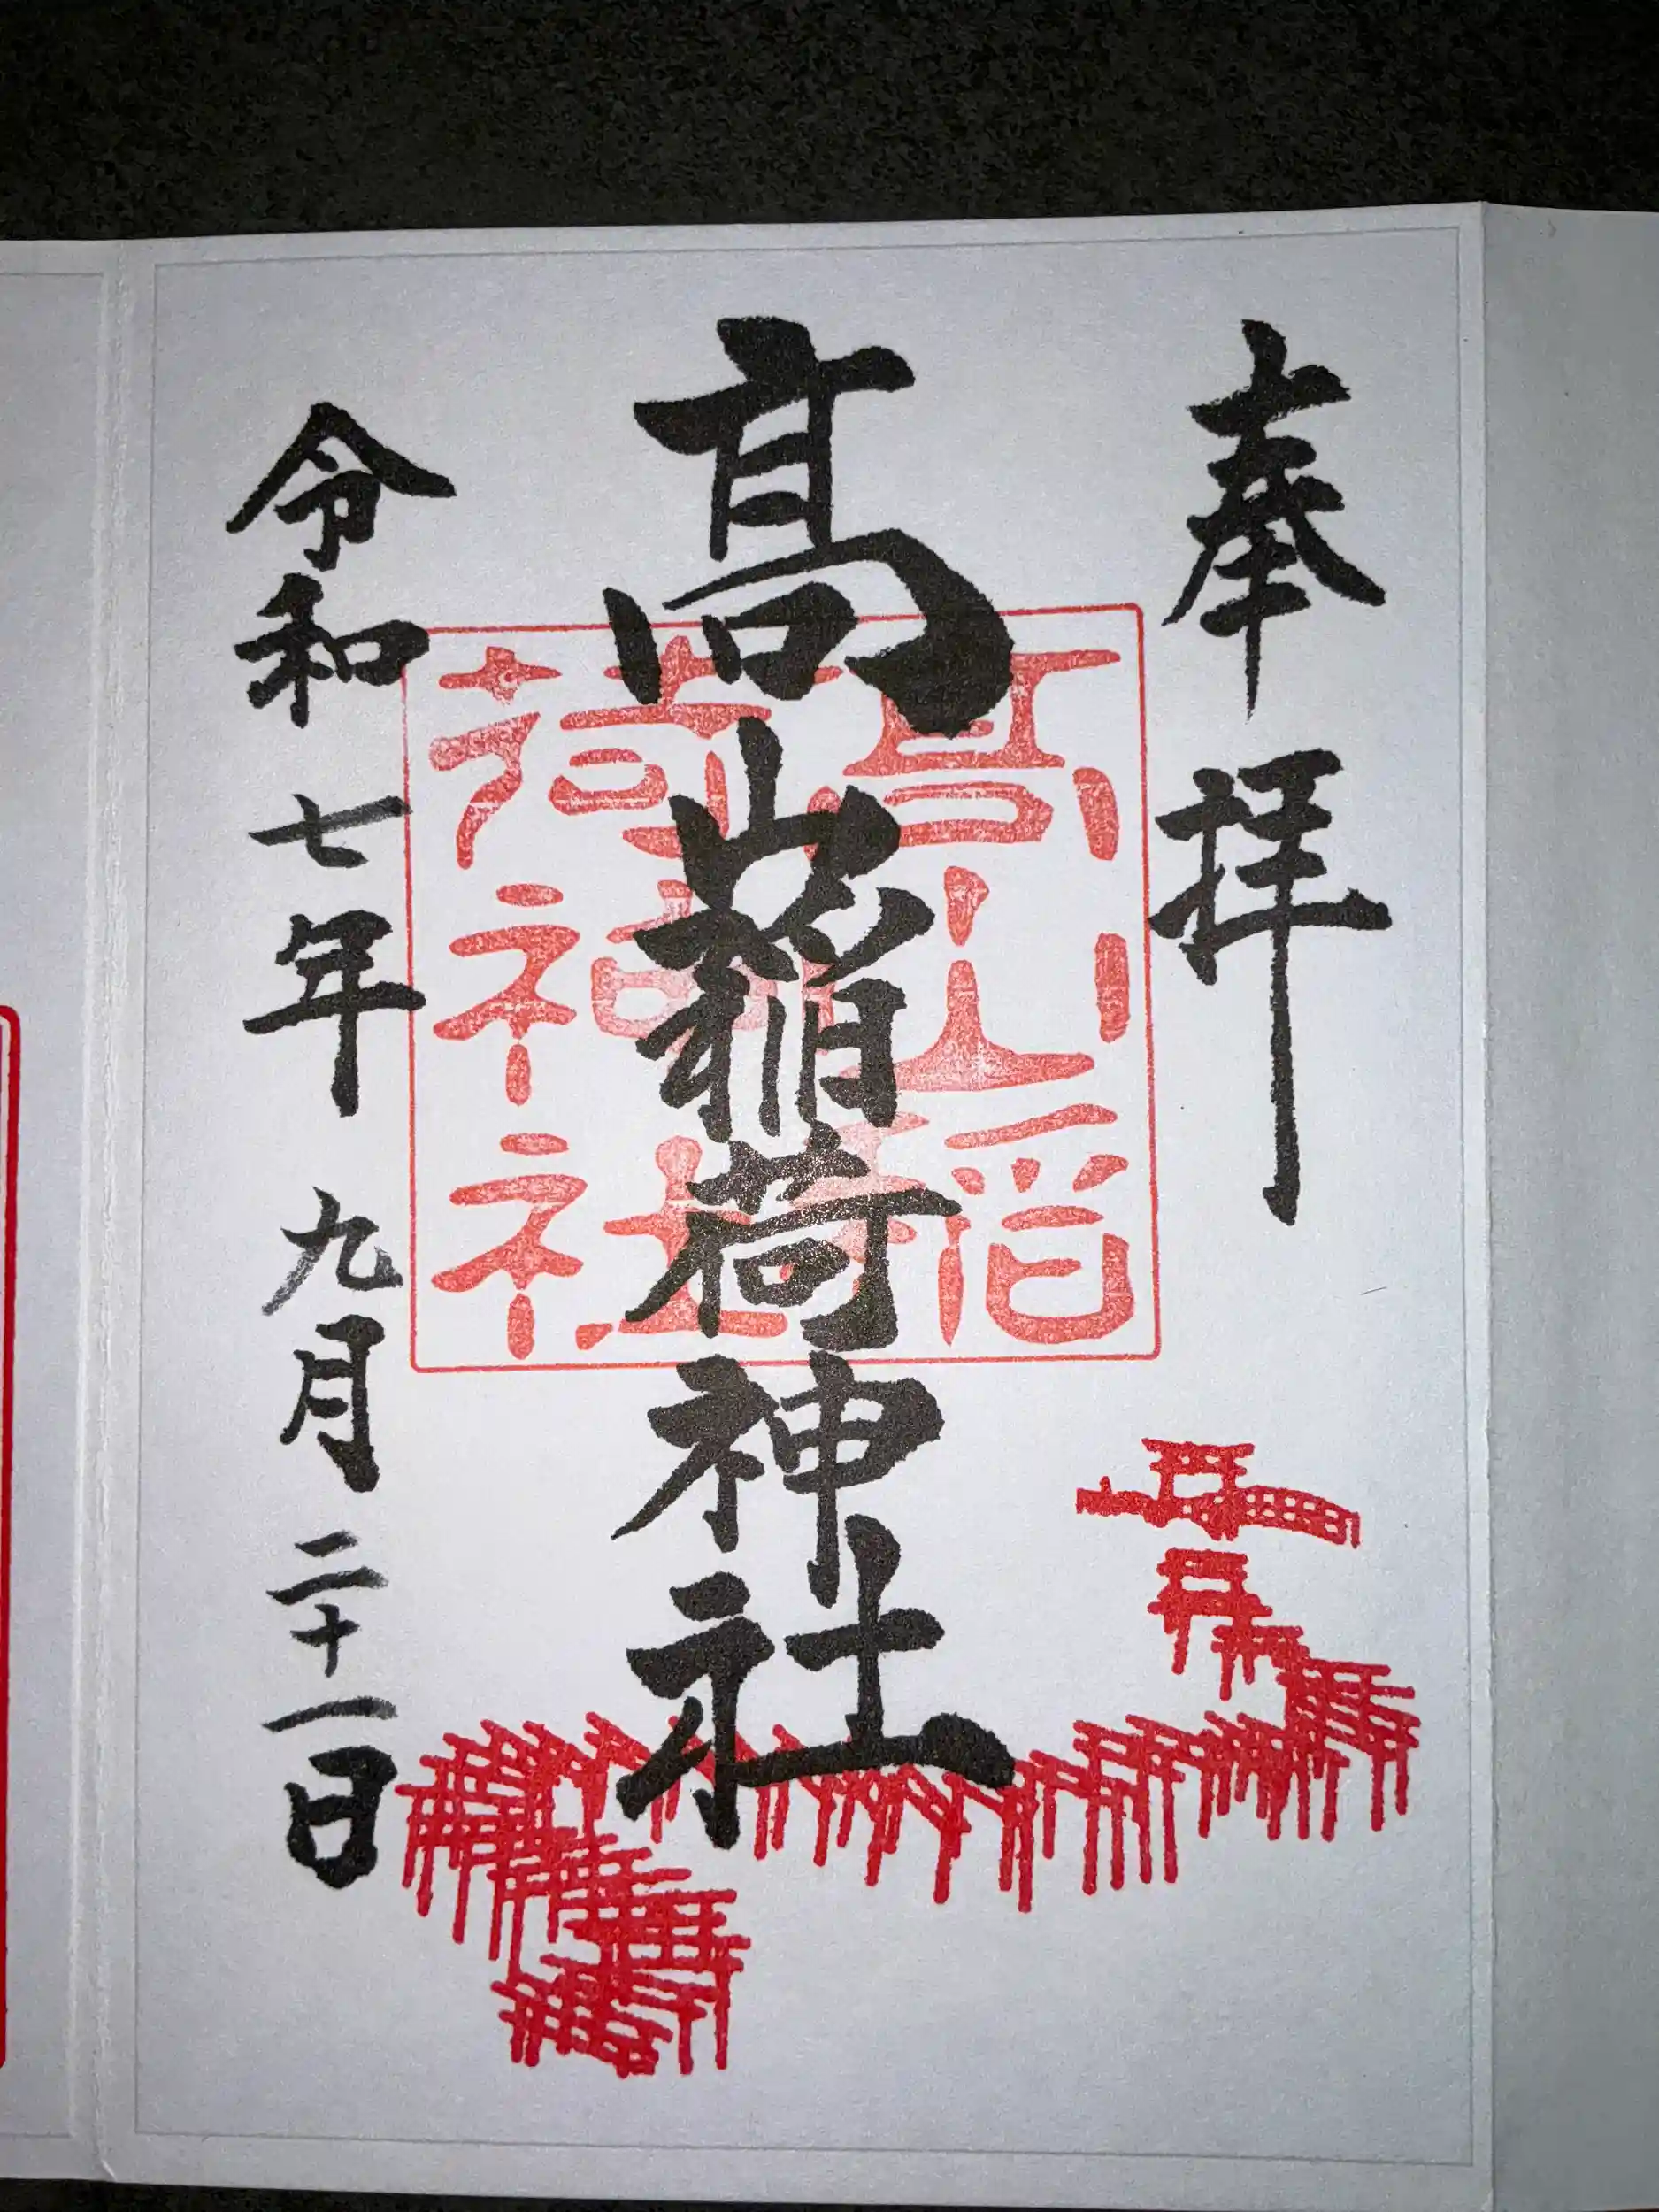 奉拝
髙山稲荷神社
髙山稲
荷神社
令和七年九月二十一日